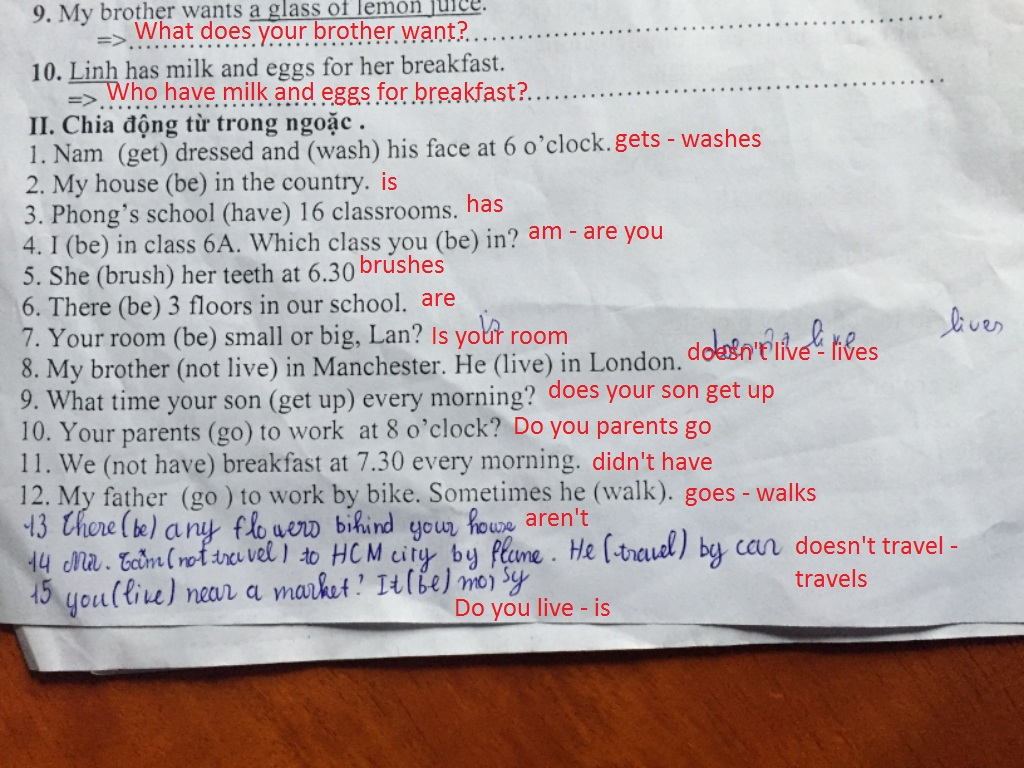 9. My brother wants a glass of lemon juice.
=> What does your brother want?
10. Linh has milk and eggs for her breakfast.
=> Who have milk and eggs for breakfast?
II. Chia động từ trong ngoặc .
1. Nam (get) dressed and (wash) his face at 6 o'clock. gets - washes
2. My house (be) in the country. is
3. Phong's school (have) 16 classrooms. has
4. I (be) in class 6A. Which class you (be) in? am - are you
5. She (brush) her teeth at 6.30 brushes
6. There (be) 3 floors in our school. are
7. Your room (be) small or big, Lan? Is your room is
8. My brother (not live) in Manchester. He (live) in London. doesn't live - lives doesn't live lives
9. What time your son (get up) every morning? does your son get up
10. Your parents (go) to work at 8 o'clock? Do you parents go
11. We (not have) breakfast at 7.30 every morning. didn't have
12. My father (go ) to work by bike. Sometimes he (walk). goes - walks
13 There (be) any flowers bihind your house aren't
14 Mr. (not travel) to HCM city by plane. He (travel) by car doesn't travel -
travels
15 you (live) near a market? It (be) Do you live - is